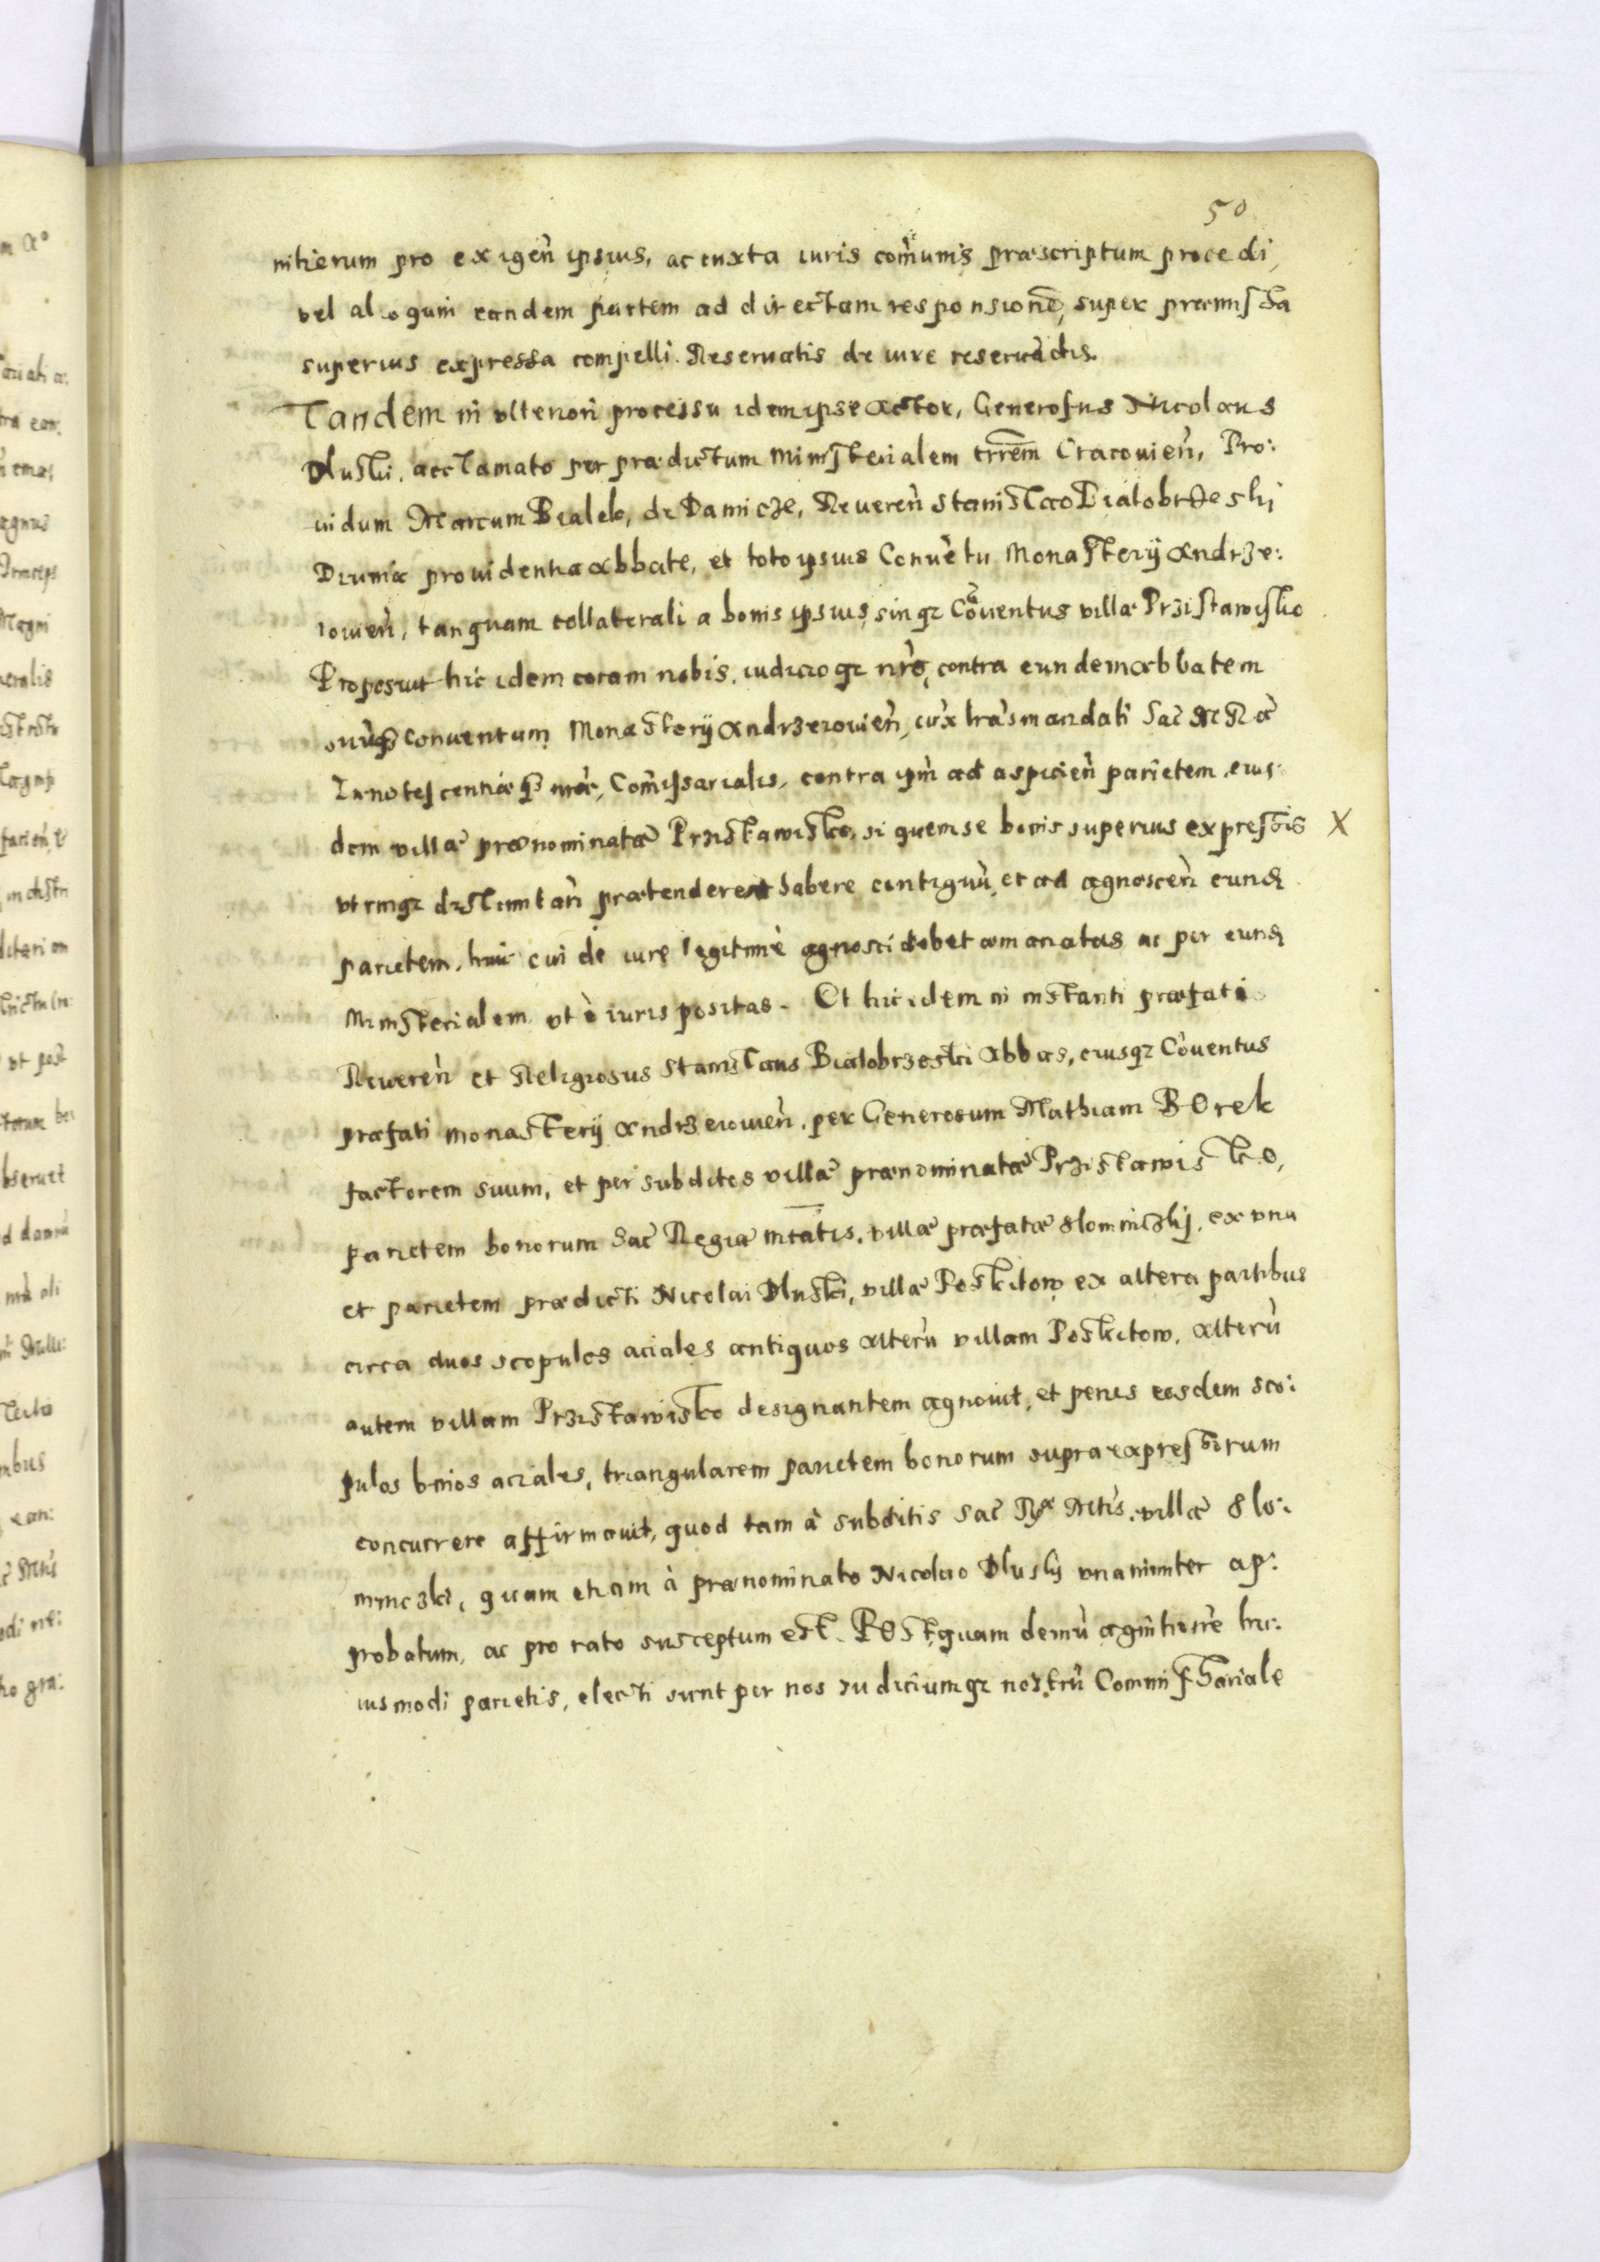 50
nitierum pro exigen̄ ipsius, ac iuxta iuris com̄unis præscriptum procedi,
vel alioquin eandem partem ad directam responsionē, super præmissa
superius expressa compelli. Reservatis de iure reseruādis.
Tandem in vlteriori processu idem ipse Actor, Generosus Nicolaus
Dluski, acclamato per prædictum Ministerialem trrēm Cracouien̄, Pro:
uidum Marcum Bialek, de Damicze, Reueren̄ Stanislao Bialobrzeski
Diuina prouidentia Abbate, et toto ipsius Conuētu Monasterij Andrze:
iouien̄, tanquam collaterali a bonis ipsius, sinqz Cōuentus villæ Przistawisko
Proposuit hic idem coram nobis, iudicioqz nr̄o, contra eundem Abbatem
suūqz Conuentum Monasterij Andrzeiouien̄, extrās mandati Sac̄ M R æ
Innotescentiæ qz nr̄æ, Com̄issarialis, contra ipm̄ ad aspicien̄ parietem, eius
dem villæ prænominatæ Przistawisko, si quem se bonis superius expressis X
vtrinqz distinctan̄ prætenderet habere contiguū, et ad agnoscen̄ eund
parietem, cui de iure legitime agnosci debet emanatas ac per eund
Ministerialem vt ē iuris positas. Et hic idem in instanti præfati
Reueren̄ et Religiosus Stanislaus Bialobrzeski Abbas, eiusqz Cōuentus
præfati monasterij Andrzeiouien̄, per Generosum Mathiam Borek
factorem suum, et per subditos villæ prænominatæ Przistawisko,
parietem bonorum Sac̄ Regiæ mtātis, villæ præfatæ Slomniczkj, ex vna
et parietem prædicti Nicolai Dluski, villæ Poskitow, ex altera partibus
circa duos scopulos aciales antiquos Alterū villam Poskitow, Alterū
autem villam Przistawisko designantem agnouit, et penes eosdem sco:
pulos binos aciales, triangularem parietem bonorum supra expressorum
concurrere affirmauit, quod tam à subditis Sac̄ Ry̅æ Mtīs, villæ Slo:
mniczki, quam etiam à prænominato Nicolao Dluskj vnanimiter ap:
probatum, ac pro rato susceptum est. Postquam demū agnitione hu:
iusmodi parietis, electi sunt per nos iudiciumqz nostrū Commissariale